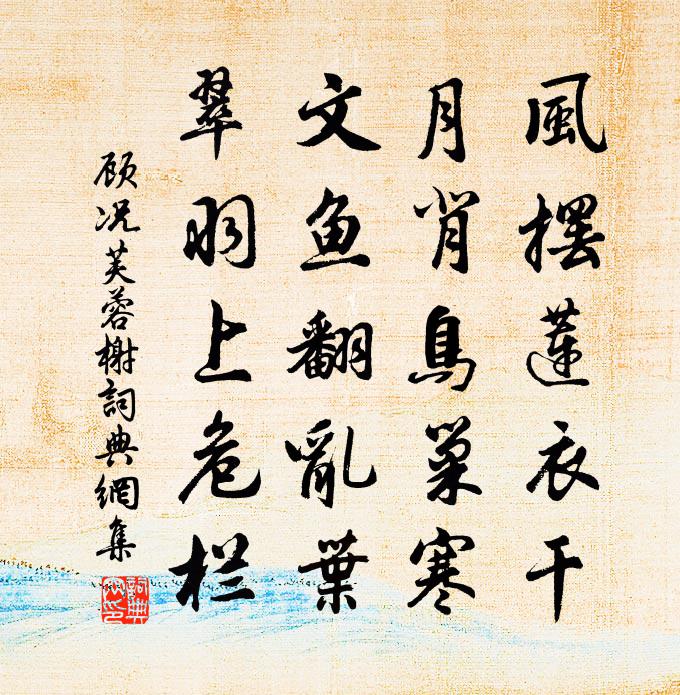 風擺蓮衣干
月背鳥巢寒
文鱼翻亂葉
翠羽上危栏
顾况芙蓉榭詞典網集